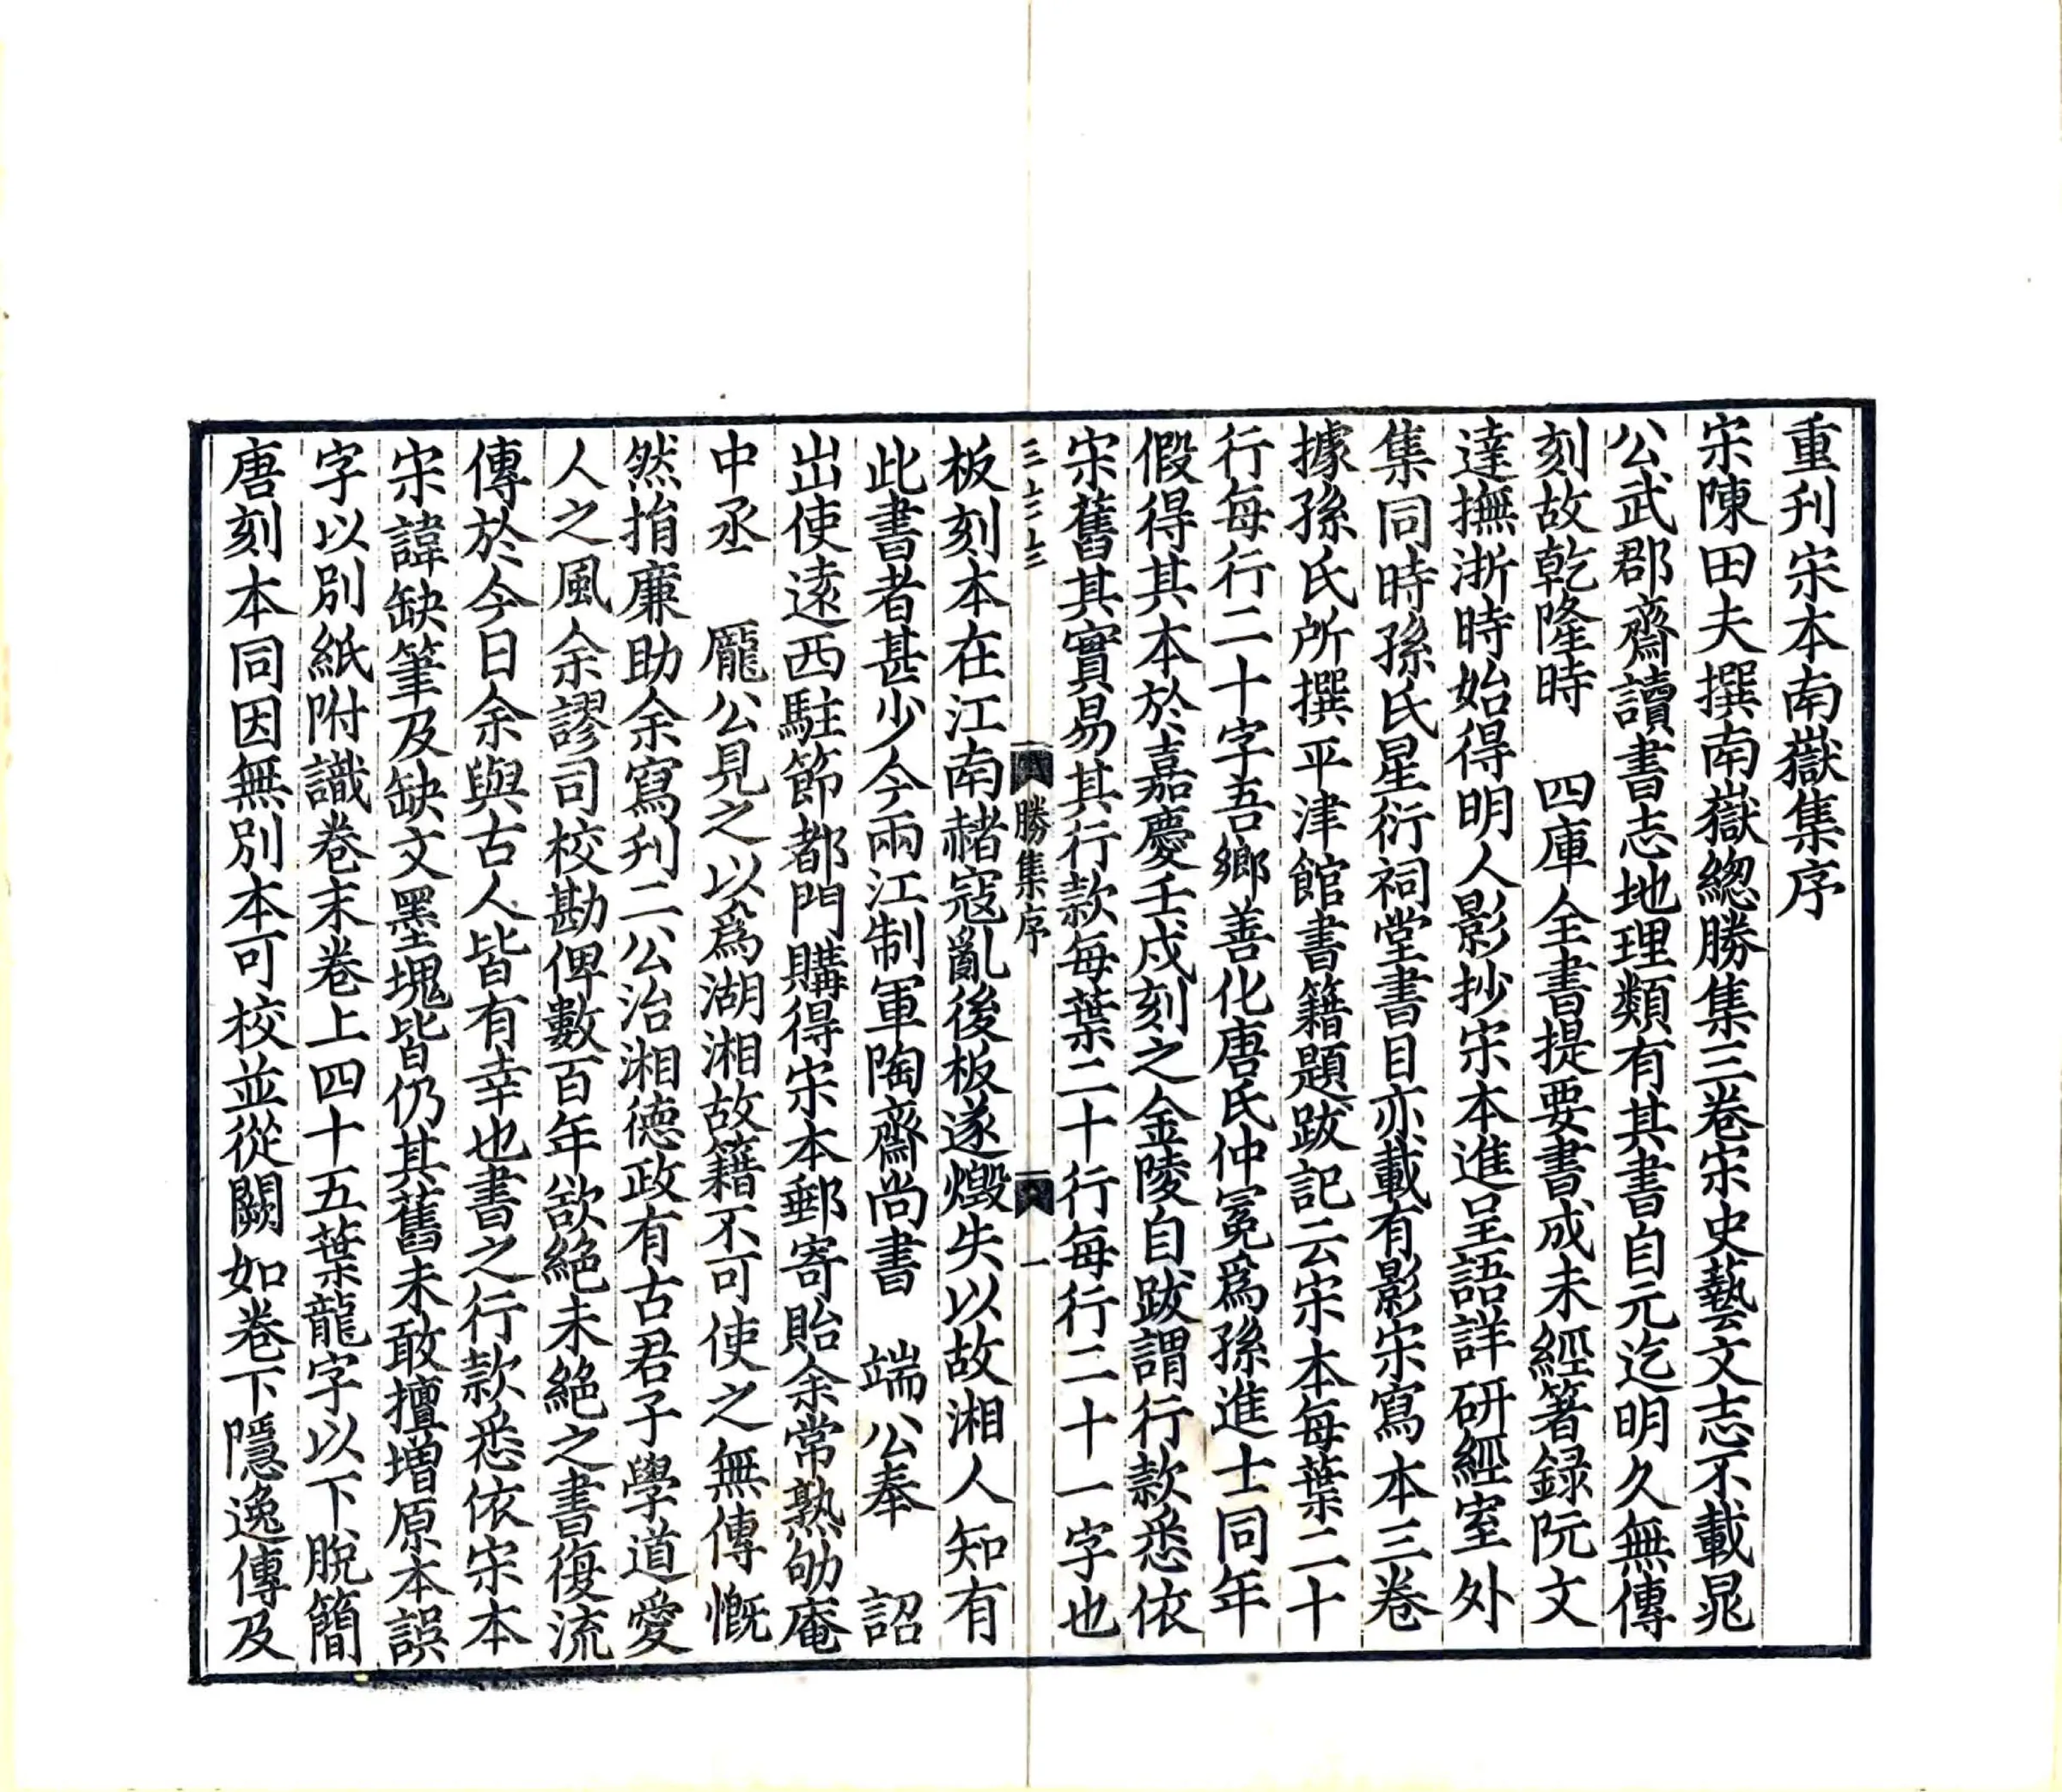 重刊宋本南嶽集序
宋陳田夫撰南嶽緫勝集三卷宋史藝文志不載晁
公武郡齋讀書志地理類有其書自元迄明久無傳
刻故乾隆時　四庫全書提要書成未經著録阮文
達撫浙時始得明人影抄宋本進呈語詳研經室外
集同時孫氏星衍祠堂書目亦載有影宋寫本三卷
據孫氏所撰平津館書籍題跋記云宋本每葉二十
行每行二十字吾鄉善化唐氏仲冕爲孫進士同年
假得其本於嘉慶壬戌刻之金陵自跋謂行款悉依
宋舊其實易其行款每葉二十行每行二十一字也
勝集序
一
板刻本在江南赭寇亂後板遂燬失以故湘人知有
此書者甚少今兩江制軍陶齋尚書　端公奉　詔
出使逺西駐節都門購得宋本郵寄貽余常熟劬庵
中丞　龎公見之以爲湖湘故籍不可使之無傳慨
然捐廉助余寫刋二公治湘德政有古君子學道愛
人之風余謬司校勘俾數百年欲絶未絶之書復流
傳於今日余與古人皆有幸也書之行款悉依宋本
宋諱缺筆及缺文墨塊皆仍其舊未敢擅增原本誤
字以別紙附識卷末卷上四十五葉龍字以下脫簡
唐刻本同因無別本可校並從闕如卷下隱逸傳及